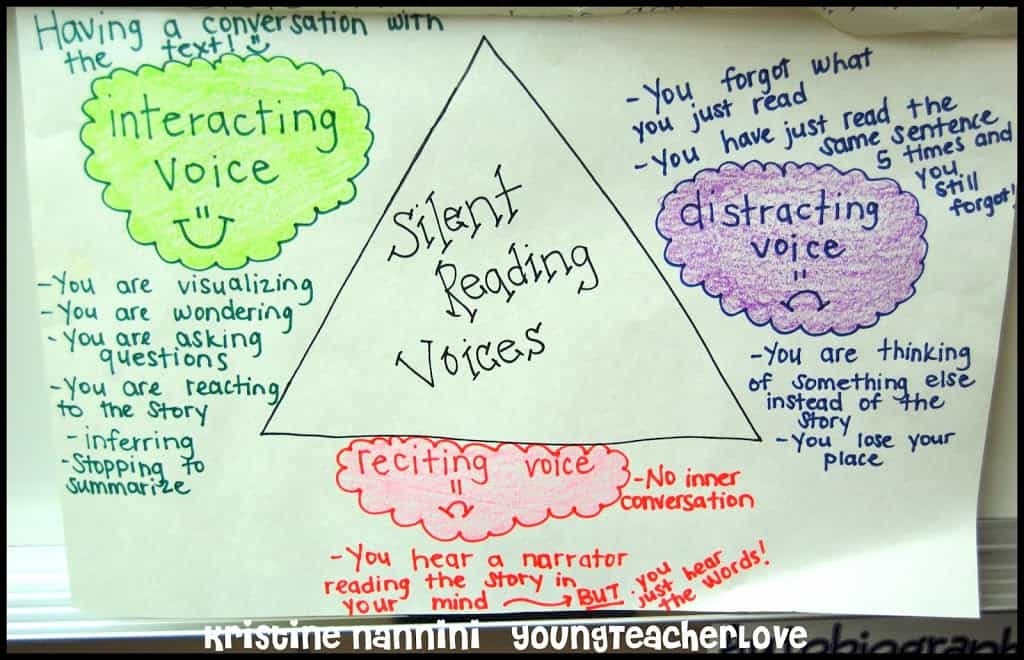 Having a conversation with
the text!
interacting
voice
-You are visualizing
-You are wondering
-You are asking
questions
-You are reacting
to the story
-inferring
-Stopping to
summarize
Silent
Reading
Voices
-You forgot what
you just read
-You have just read the
same sentence
5 times and
you
still
forgot!
distracting
voice
-You are thinking
of something else
instead of the
story
-You lose your
place
reciting voice
-No inner
conversation
-You hear a narrator
reading the story in
your mind → BUT you
just hear
the words!
Kristine Nannini YoungTeacherLove